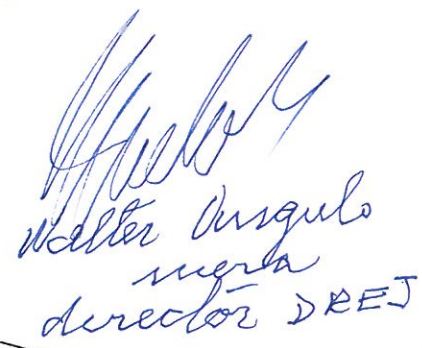 Walter Angulo
mera
director DREJ